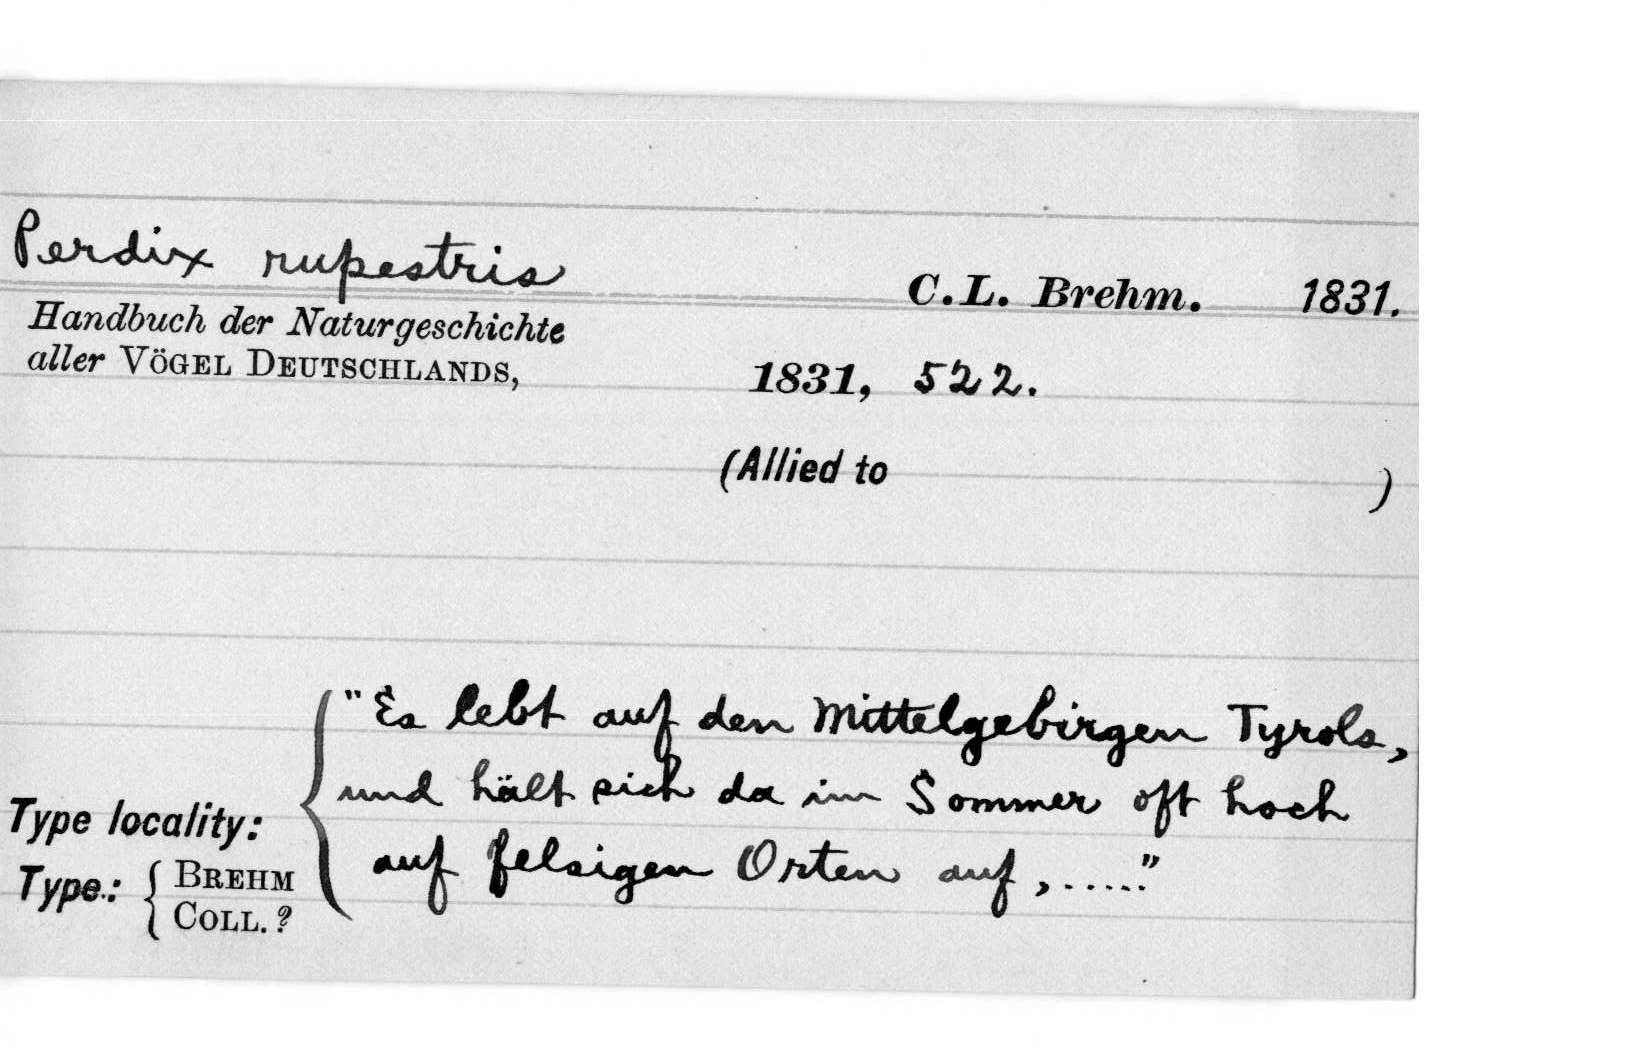 Perdix rupestris
C.L. Brehm. 1831.
Handbuch der Naturgeschichte
aller VÖGEL DEUTSCHLANDS,
1831, 522.
(Allied to )
"Es lebt auf den Mittelgebirgen Tyrols,
und hält sich da im Sommer oft hoch
auf felsigen Orten auf,......"
Type locality:
Type.: { BREHM
COLL. ?